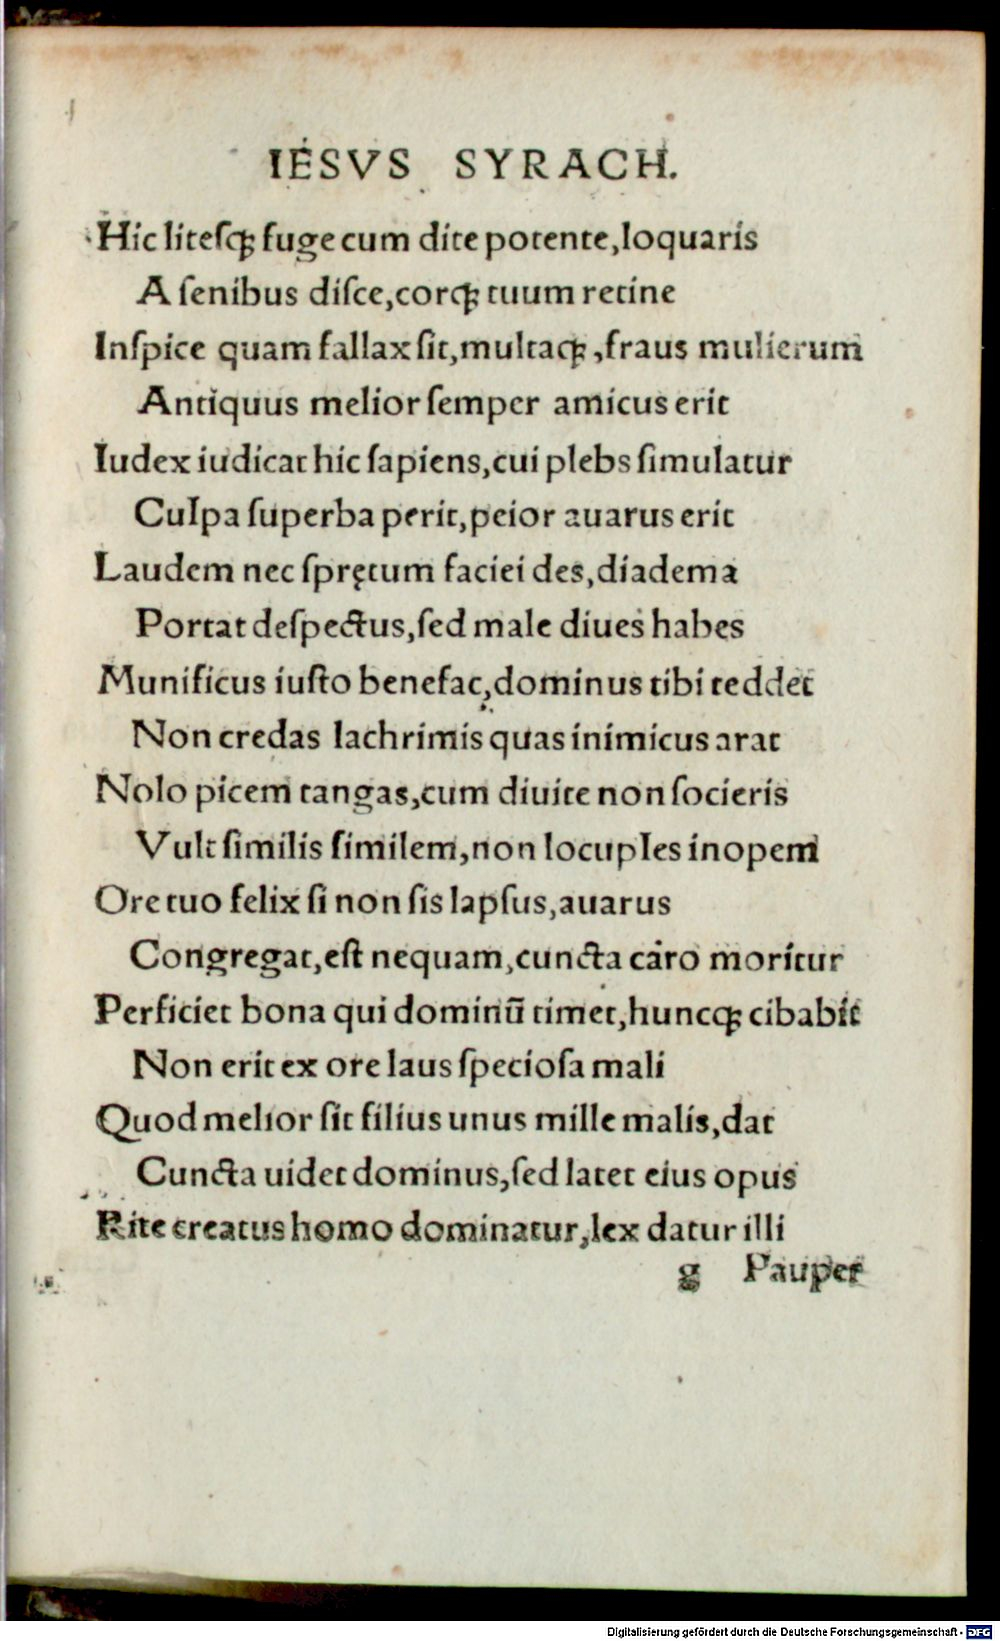 IESVS SYRACH.
Hic liteſqꝫ fuge cum dite potente, loquaris
A ſenibus diſce, corqꝫ tuum retine
Inſpice quam fallax ſit, multaqꝫ, fraus mulierum
Antiquus melior ſemper amicus erit
Iudex iudicat hic ſapiens, cui plebs ſimulatur
Culpa ſuperba perit, peior auarus erit
Laudem nec ſprętum faciei des, diadema
Portat deſpectus, ſed male diues habes
Munificus iuſto benefac, dominus tibi reddet
Non credas lachrimis quas inimicus arat
Nolo picem tangas, cum diuite non ſocieris
Vult ſimilis ſimilem, non locuples inopem
Ore tuo felix ſi non ſis lapſus, auarus
Congregat, eſt nequam, cuncta caro moritur
Perficiet bona qui dominũ timet, huncqꝫ cibabit
Non erit ex ore laus ſpecioſa mali
Quod melior ſit filius unus mille malis, dat
Cuncta uidet dominus, ſed latet eius opus
Rite creatus homo dominatur, lex datur illi
g Pauper
Digitalisierung gefördert durch die Deutsche Forschungsgemeinschaft - DFG